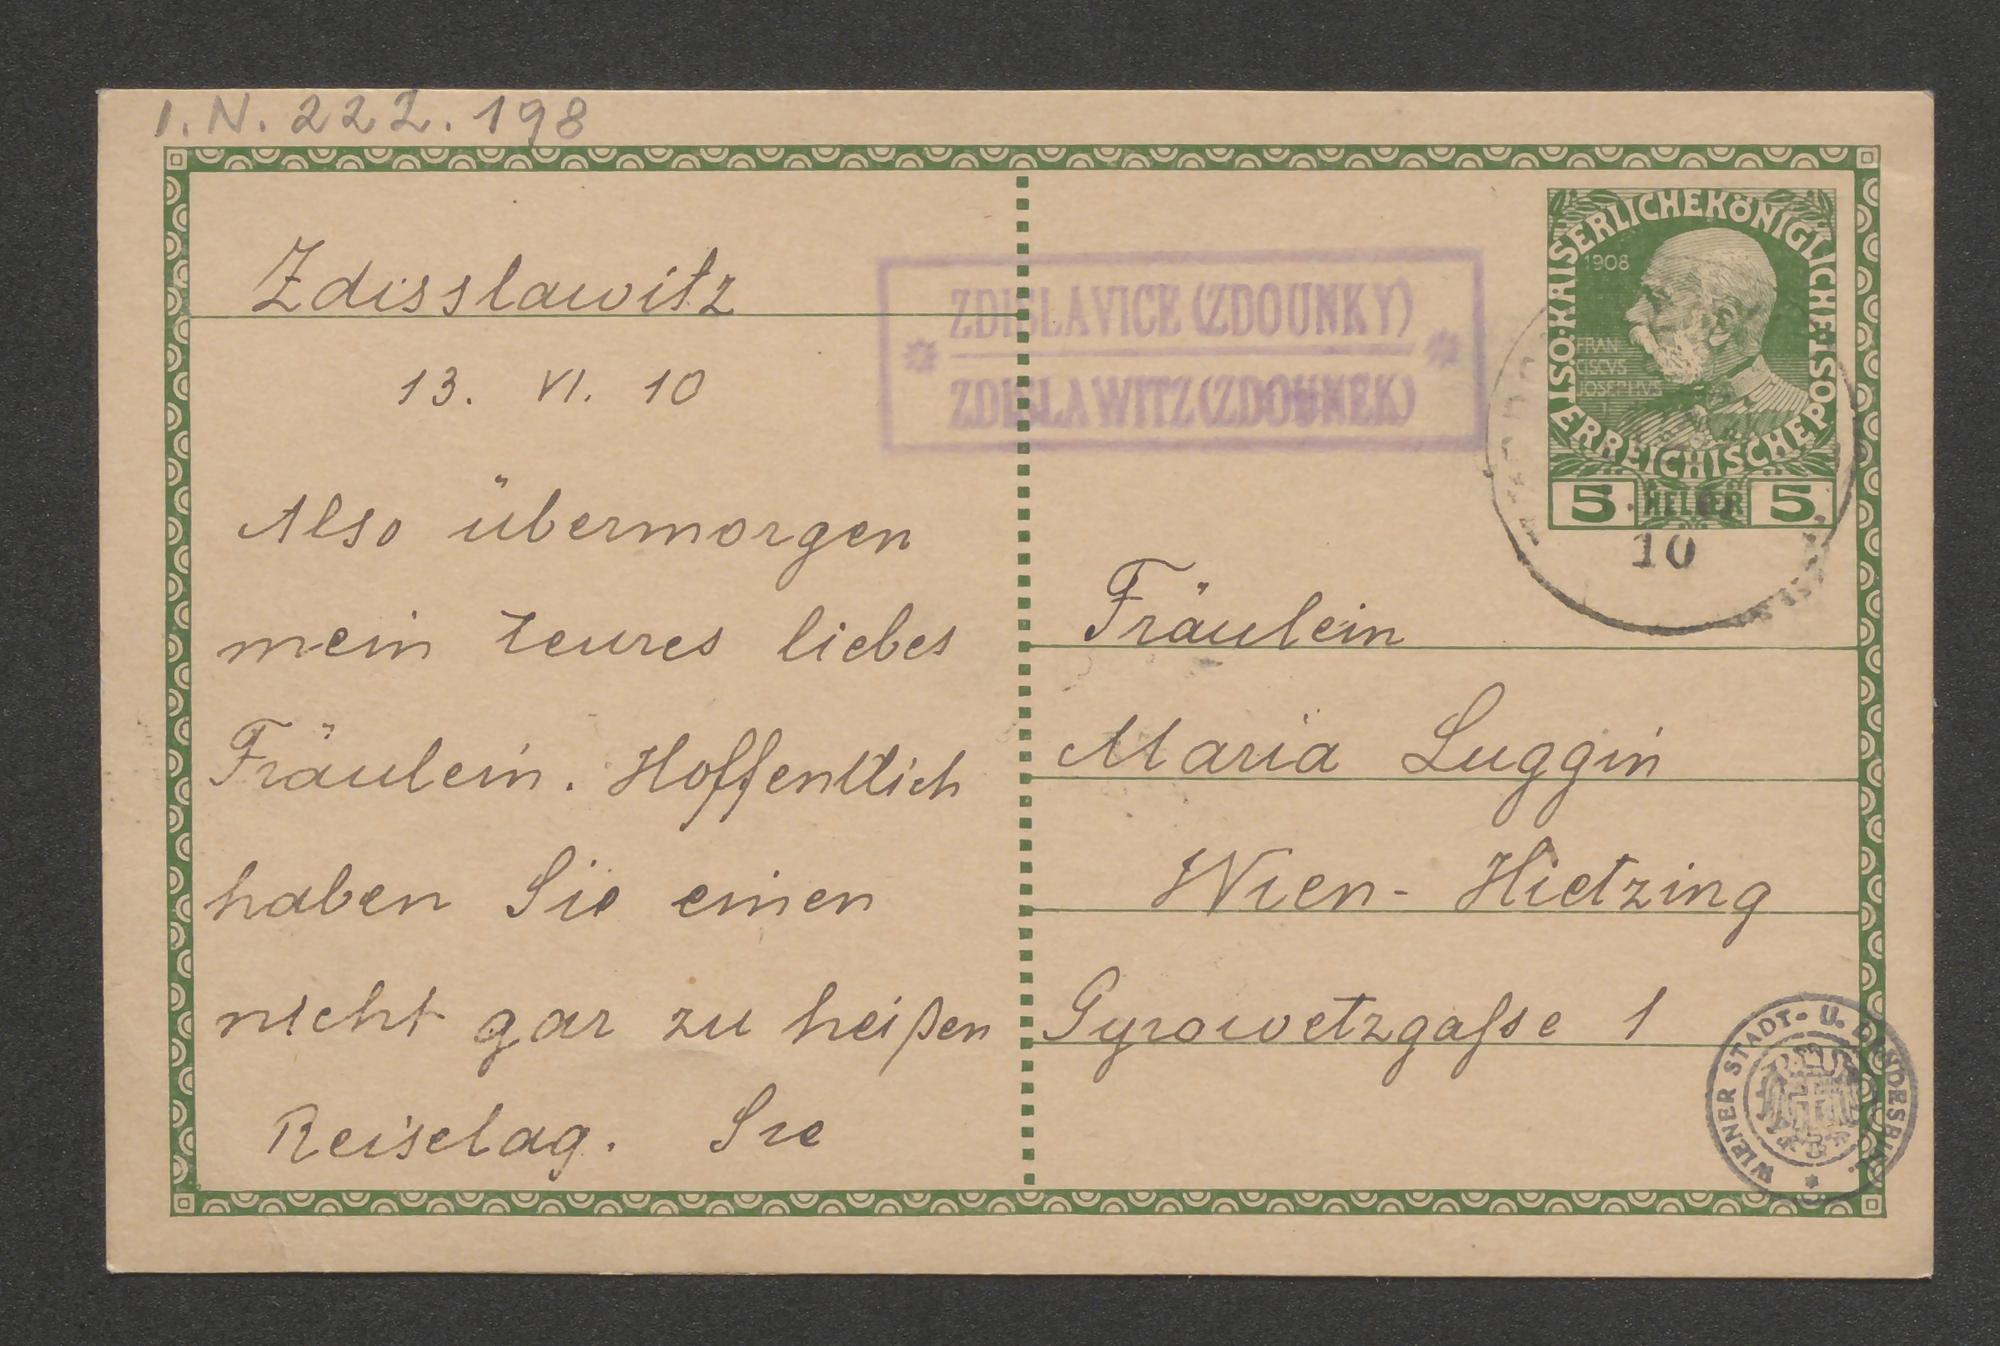 I. N. 222. 198
Zdisslawitz
13. VI. 10
Also übermorgen
mein teures liebes
Fräulein. Hoffentlich
haben Sie einen
nicht gar zu heißen
Reisetag. Sie
ZDISLAVICE (ZDOUNKY)
ZDISLAWITZ (ZDOUNEK)
KAISERLICHEKÖNIGLICHE
ÖSTERREICHISCHEPOST
1908
FRAN
CISCVS
JOSEPHVS
I
5 HELLER 5
10
Fräulein
Maria Luggin
Wien-Hietzing
Gyrowetzgasse 1
WIENER STADT- U. LANDESBIBL.